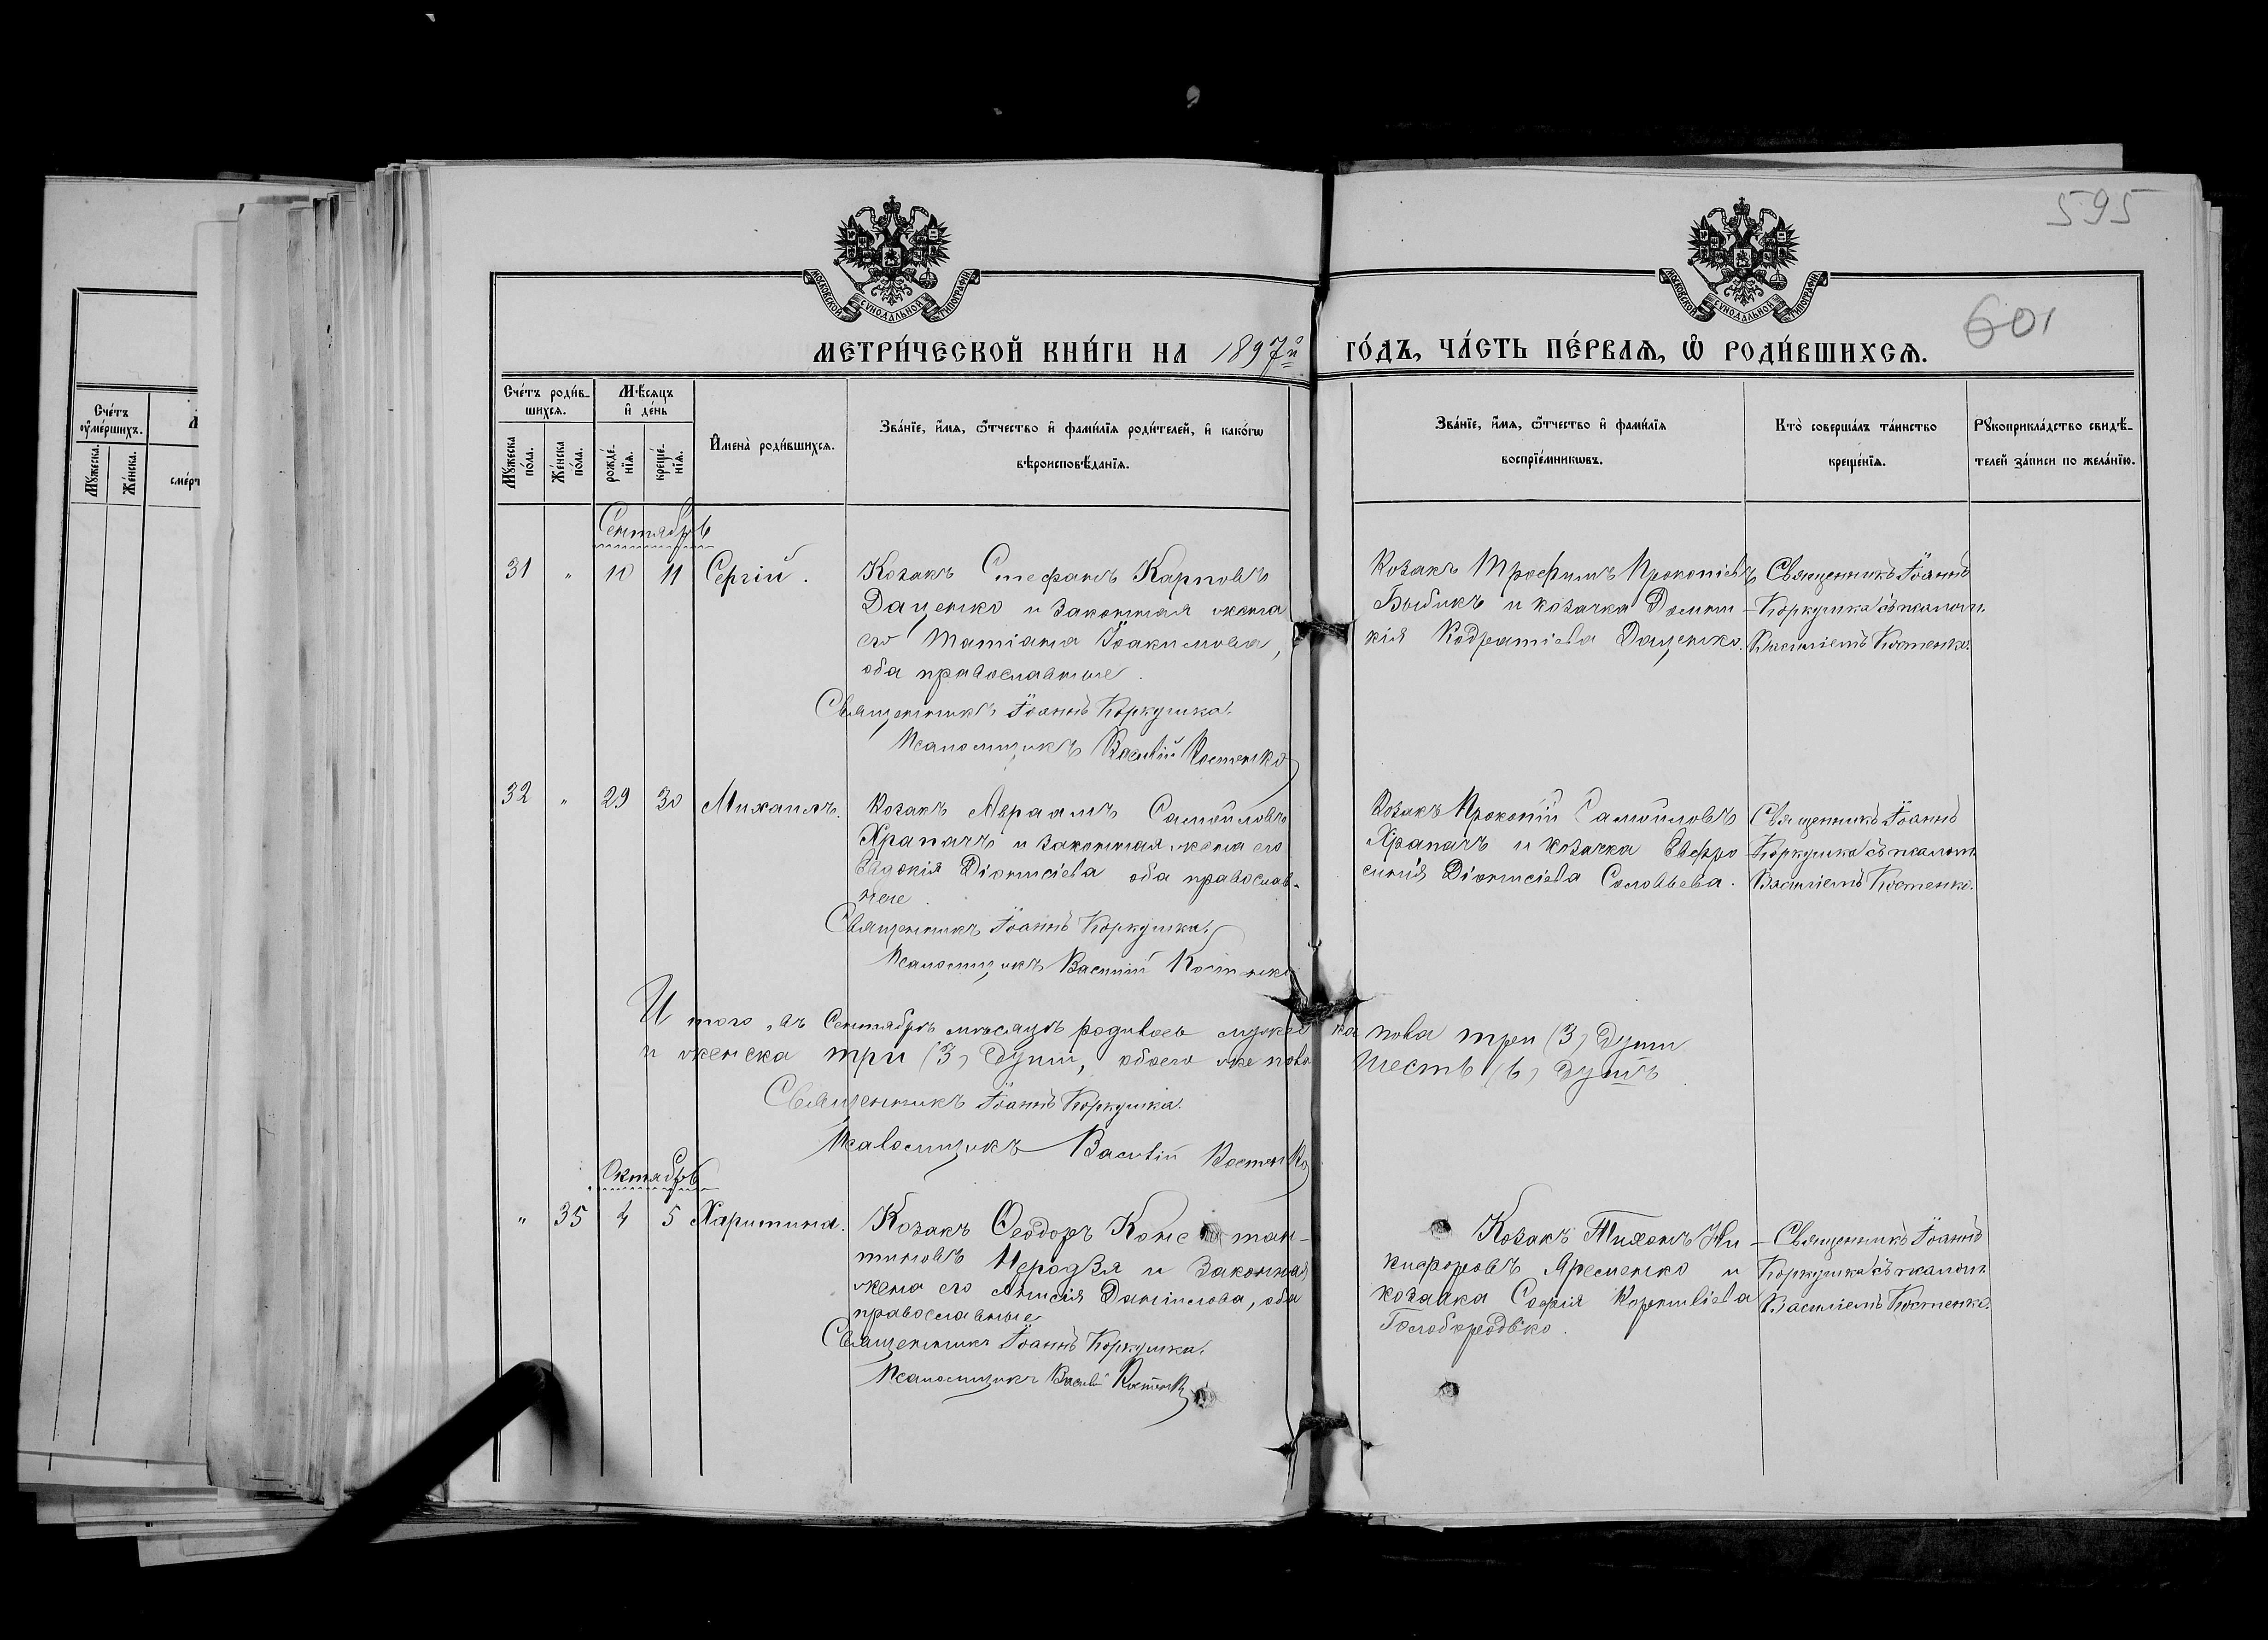 595
601
МОСКОВСКОЙ СѴНОДАЛЬНОЙ ТИПОГРАФІИ
МОСКОВСКОЙ СѴНОДАЛЬНОЙ ТИПОГРАФІИ
МЕТРИ́ЧЕСКОЙ КНИ́ГИ НА 1897й ГО́ДЪ, ЧА́СТЬ ПЕ́РВАЯ, Ѡ РОДИ́ВШИХСЯ.
Сче́тъ ᲂу҆ме́ршихъ.
Мꙋ́жеска.
Же́нска.
Сче́тъ роди́в-
шихся.
Мꙋ́жеска по́ла.
Же́нска по́ла.
Мѣ́сяцъ и҆ де́нь
рожде́-нїя.
креще́-нїя.
И҆мена̀ роди́вшихся.
Зва́нїе, и҆́мя, ѻ҆́тчество и҆ фами́лїя роди́телей, и҆ како́гѡ
вѣроисповѣ́данїя.
Зва́нїе, и҆́мя, ѻ҆́тчество и҆ фами́лїя
воспрїе́мникѡвъ.
Кто̀ соверша́лъ та́инство
креще́нїя.
Рꙋкоприкла́дство свидѣ́-
телей за́писи по жела́нїю.
Сентябрь
31 " 10 11 Сергій.
Козакъ Стефанъ Карповъ
Даценко и законная жена
его Татіана Іоакимова,
оба православные.
Священникъ Іоаннъ Коркушка.
Псаломщикъ Василій Костенко
Козакъ Трофимъ Прокопіевъ
Быбикъ и козачка Домни-
кія Кодратіева Даценко.
Священникъ Іоаннъ
Коркушка съ псалом.
Василіемъ Костенко.
32 " 29 30 Михаилъ.
Козакъ Авраамъ Самойловъ
Храпачъ и законная жена его
Евдокія Діонисіева оба православ-
ные.
Священникъ Іоаннъ Коркушка.
Псаломщикъ Василій Костенко
Козакъ Прокопій Самойловъ
Храпачъ и козачка Евфро-
синія Діонисіева Соловьева.
Священникъ Іоаннъ
Коркушка съ псалом.
Василіемъ Костенко.
Итого, въ Сентябрѣ мѣсяцѣ родилось мужеска пола три (3) души
и женска три (3) души, обоего же пола шесть (6) душъ.
Священникъ Іоаннъ Коркушка.
Псаломщикъ Василій Костенко
Октябрь
" 35 4 5 Харитина.
Козакъ Ѳеодоръ Констан-
тиновъ Неродзя и законная
жена его Анисія Даніилова, оба
православные
Священникъ Іоаннъ Коркушка.
Псаломщикъ Василій Костенко
Козакъ Тихонъ Ни-
кифоровъ Яресменко и
козачка Софія Корниліева
Голобородько.
Священникъ Іоаннъ
Коркушка съ псалом.
Василіемъ Костенко.